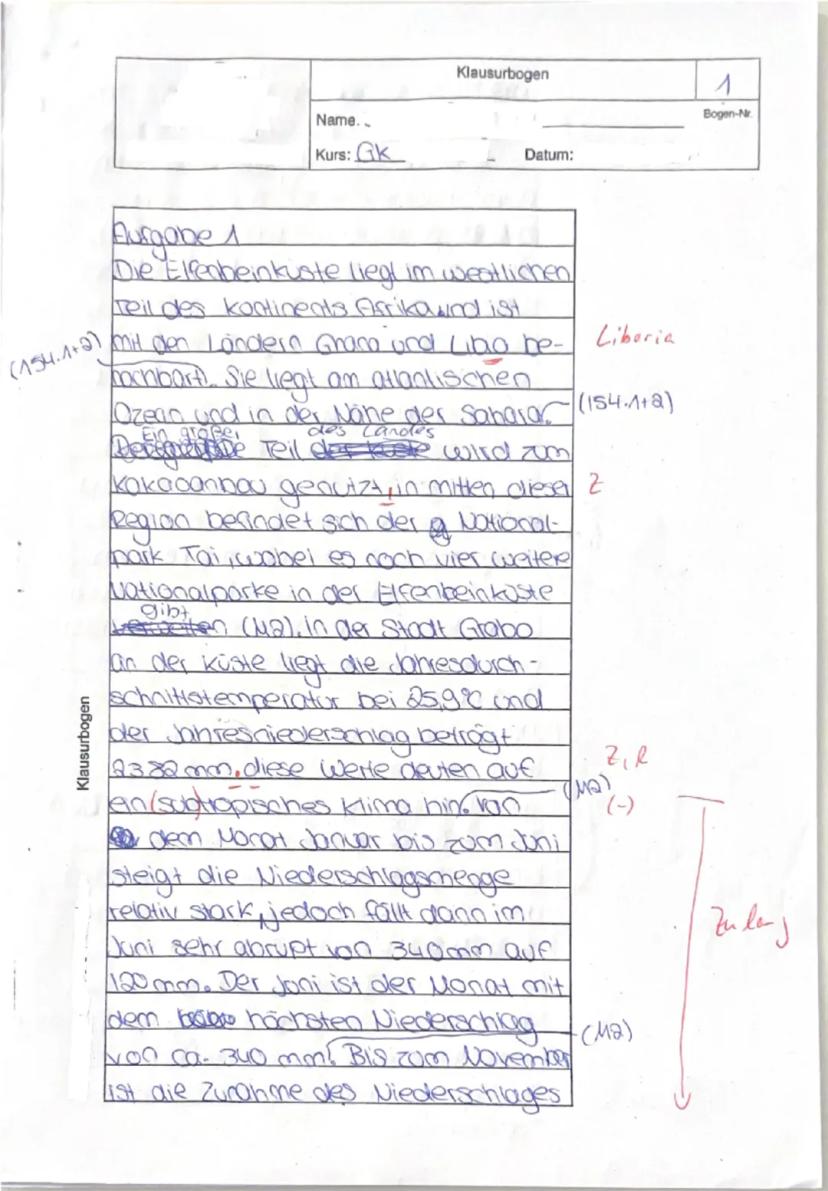 Klausurbogen
1
Name.
Bogen-Nr.
Kurs: GK
Datum:
Aufgabe 1
Die Elfenbeinküste liegt im westlichen
Teil des Kontinents Afrika und ist
mit den Ländern Ghana und Libao be-
Liberia
(154.1+2)
nachbart. Sie liegt am atlantischen
Ozean und in der Nähe der Sahara.
(154.1+2)
Ein großer des Landes
Teil wird zum
Kakaoanbau genutzt, in mitten dieser
Z
Region befindet sich der National-
park Tai, wobei es noch vier weitere
Nationalparke in der Elfenbeinküste
gibt
(M2). In der Stadt Grabo
an der Küste liegt die Jahresdurch-
schnittstemperatur bei 25,9°C und
der Jahresniederschlag beträgt
2382 mm, diese Werte deuten auf
Z, R
(M2)
ein (sub)tropisches Klima hin. Von
(-)
dem Monat Januar bis zum Juni
steigt die Niederschlagsmenge
relativ stark, jedoch fällt dann im
zu lang
Juni sehr abrupt von 340mm auf
120mm. Der Juni ist der Monat mit
dem höchsten Niederschlag
(M2)
von ca. 340 mm. Bis zum November
ist die Zunahme des Niederschlages
Klausurbogen